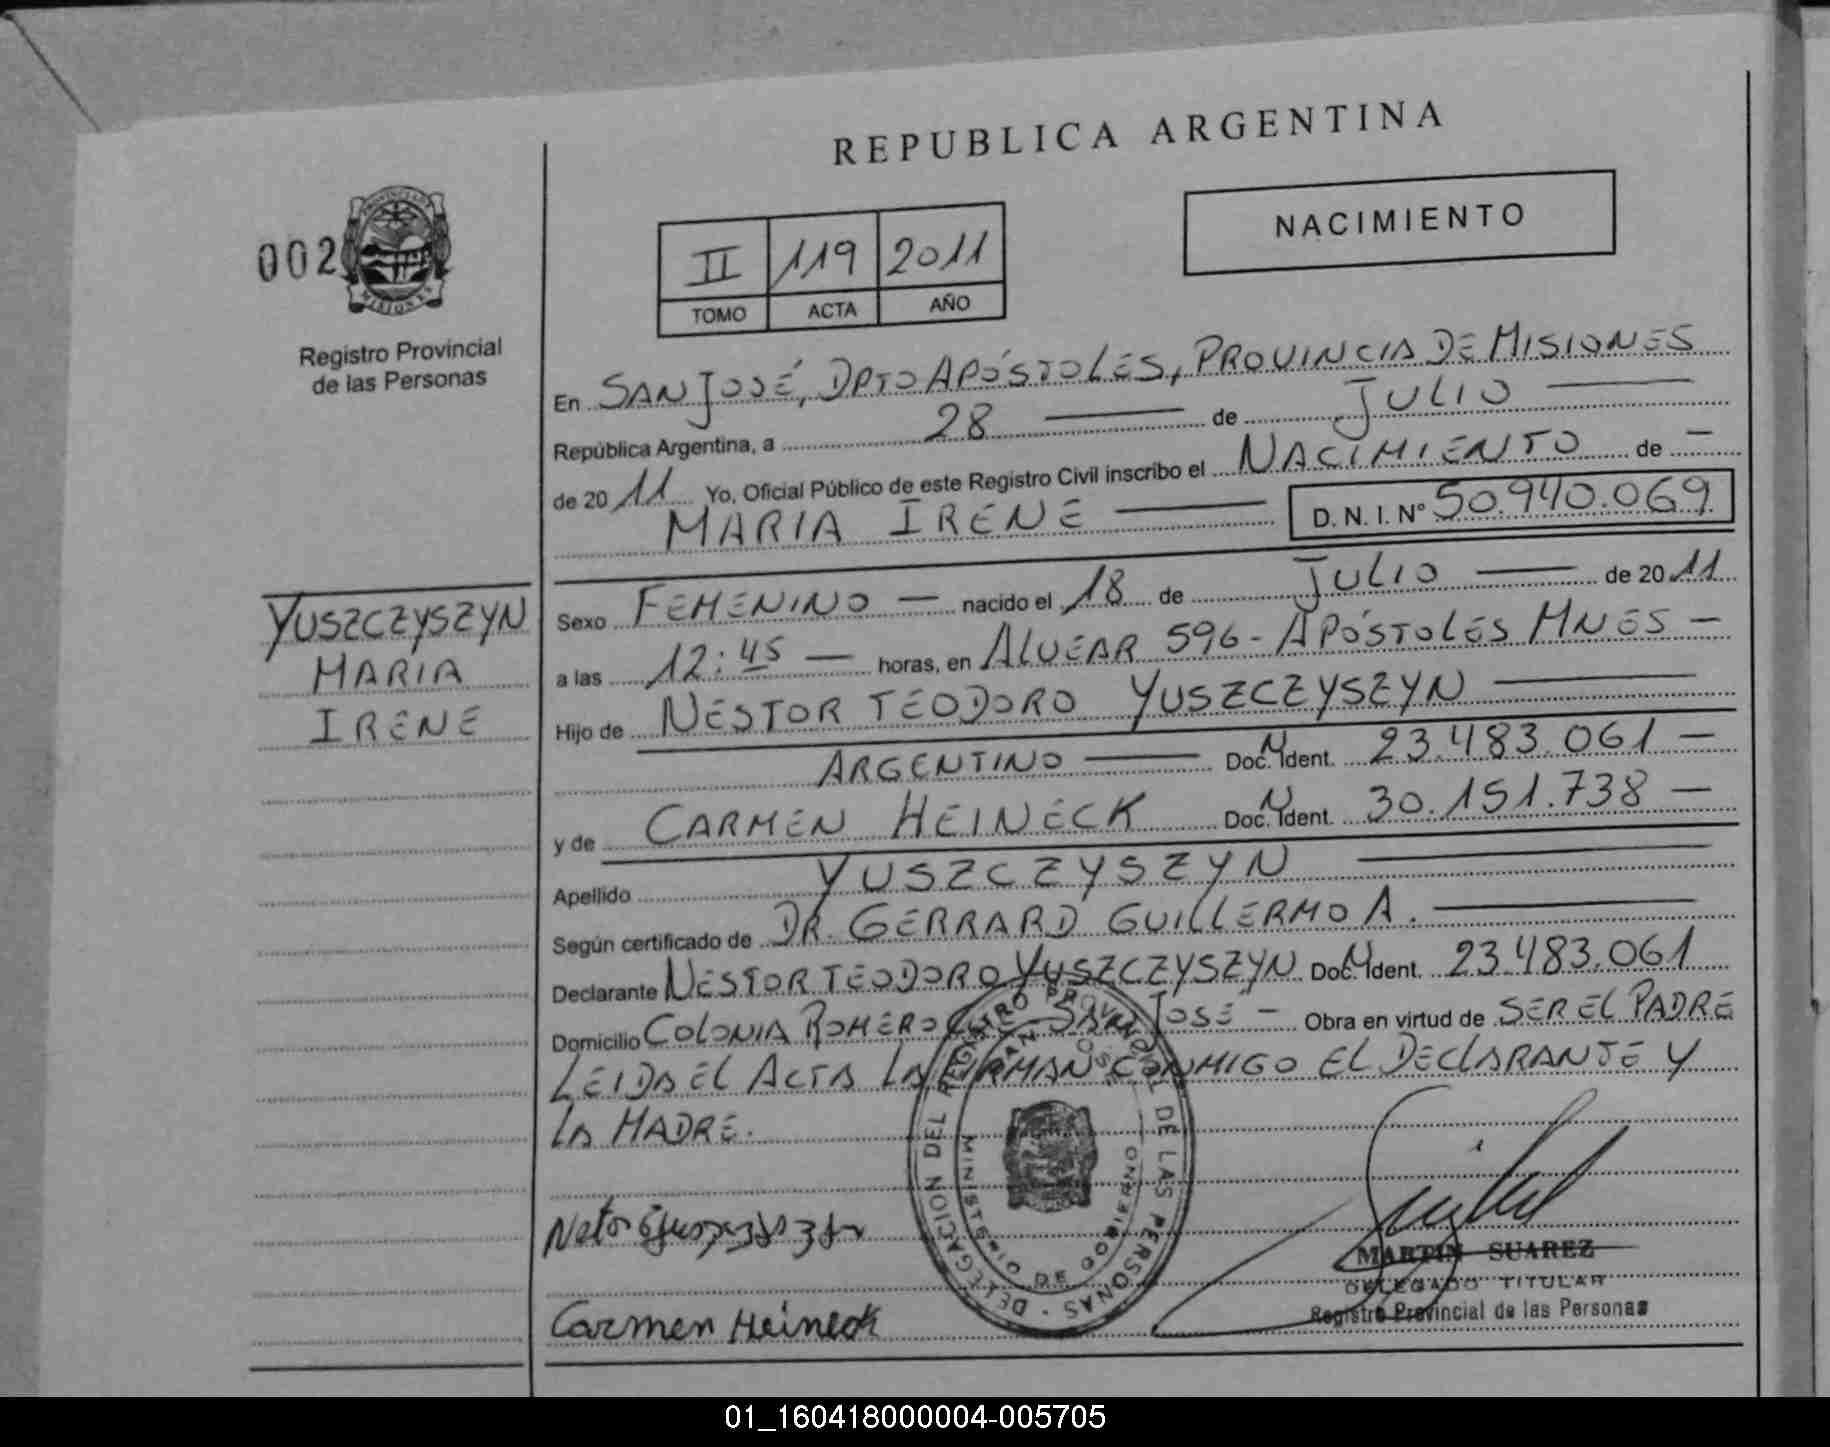 REPUBLICA ARGENTINA
NACIMIENTO
002
PROVINCIA DE MISIONES
Registro Provincial
de las Personas
II 119 2011
TOMO ACTA AÑO
En SAN JOSÉ, DPTO APÓSTOLES, PROVINCIA DE MISIONES
República Argentina, a 28 de JULIO
de 20 11 Yo, Oficial Público de este Registro Civil inscribo el NACIMIENTO de
MARIA IRENE D. N. I. Nº 50.940.069
YUSZCZYSZYN
MARIA
IRENE
Sexo FEMENINO nacido el 18 de JULIO de 20 11
a las 12:45 horas, en ALVEAR 596 - APÓSTOLES MNES
Hijo de NESTOR TEODORO YUSZCZYSZYN
ARGENTINO Doc. Ident. 23.483.061
y de CARMEN HEINECK Doc. Ident. 30.151.738
Apellido YUSZCZYSZYN
Según certificado de DR. GERRARD GUILLERMO A.
Declarante NESTOR TEODORO YUSZCZYSZYN Doc. Ident. 23.483.061
Domicilio COLONIA ROMERO SAN JOSÉ - Obra en virtud de SER EL PADRE
LEIDA EL ACTA LA FIRMAN CONMIGO EL DECLARANTE Y
LA MADRE.
DELEGACION DEL REGISTRO PROVINCIAL DE LAS PERSONAS
SAN JOSE
MINISTERIO DE GOBIERNO
Carmen Heineck
MARTIN SUAREZ
DELEGADO TITULAR
Registro Provincial de las Personas
01_160418000004-005705